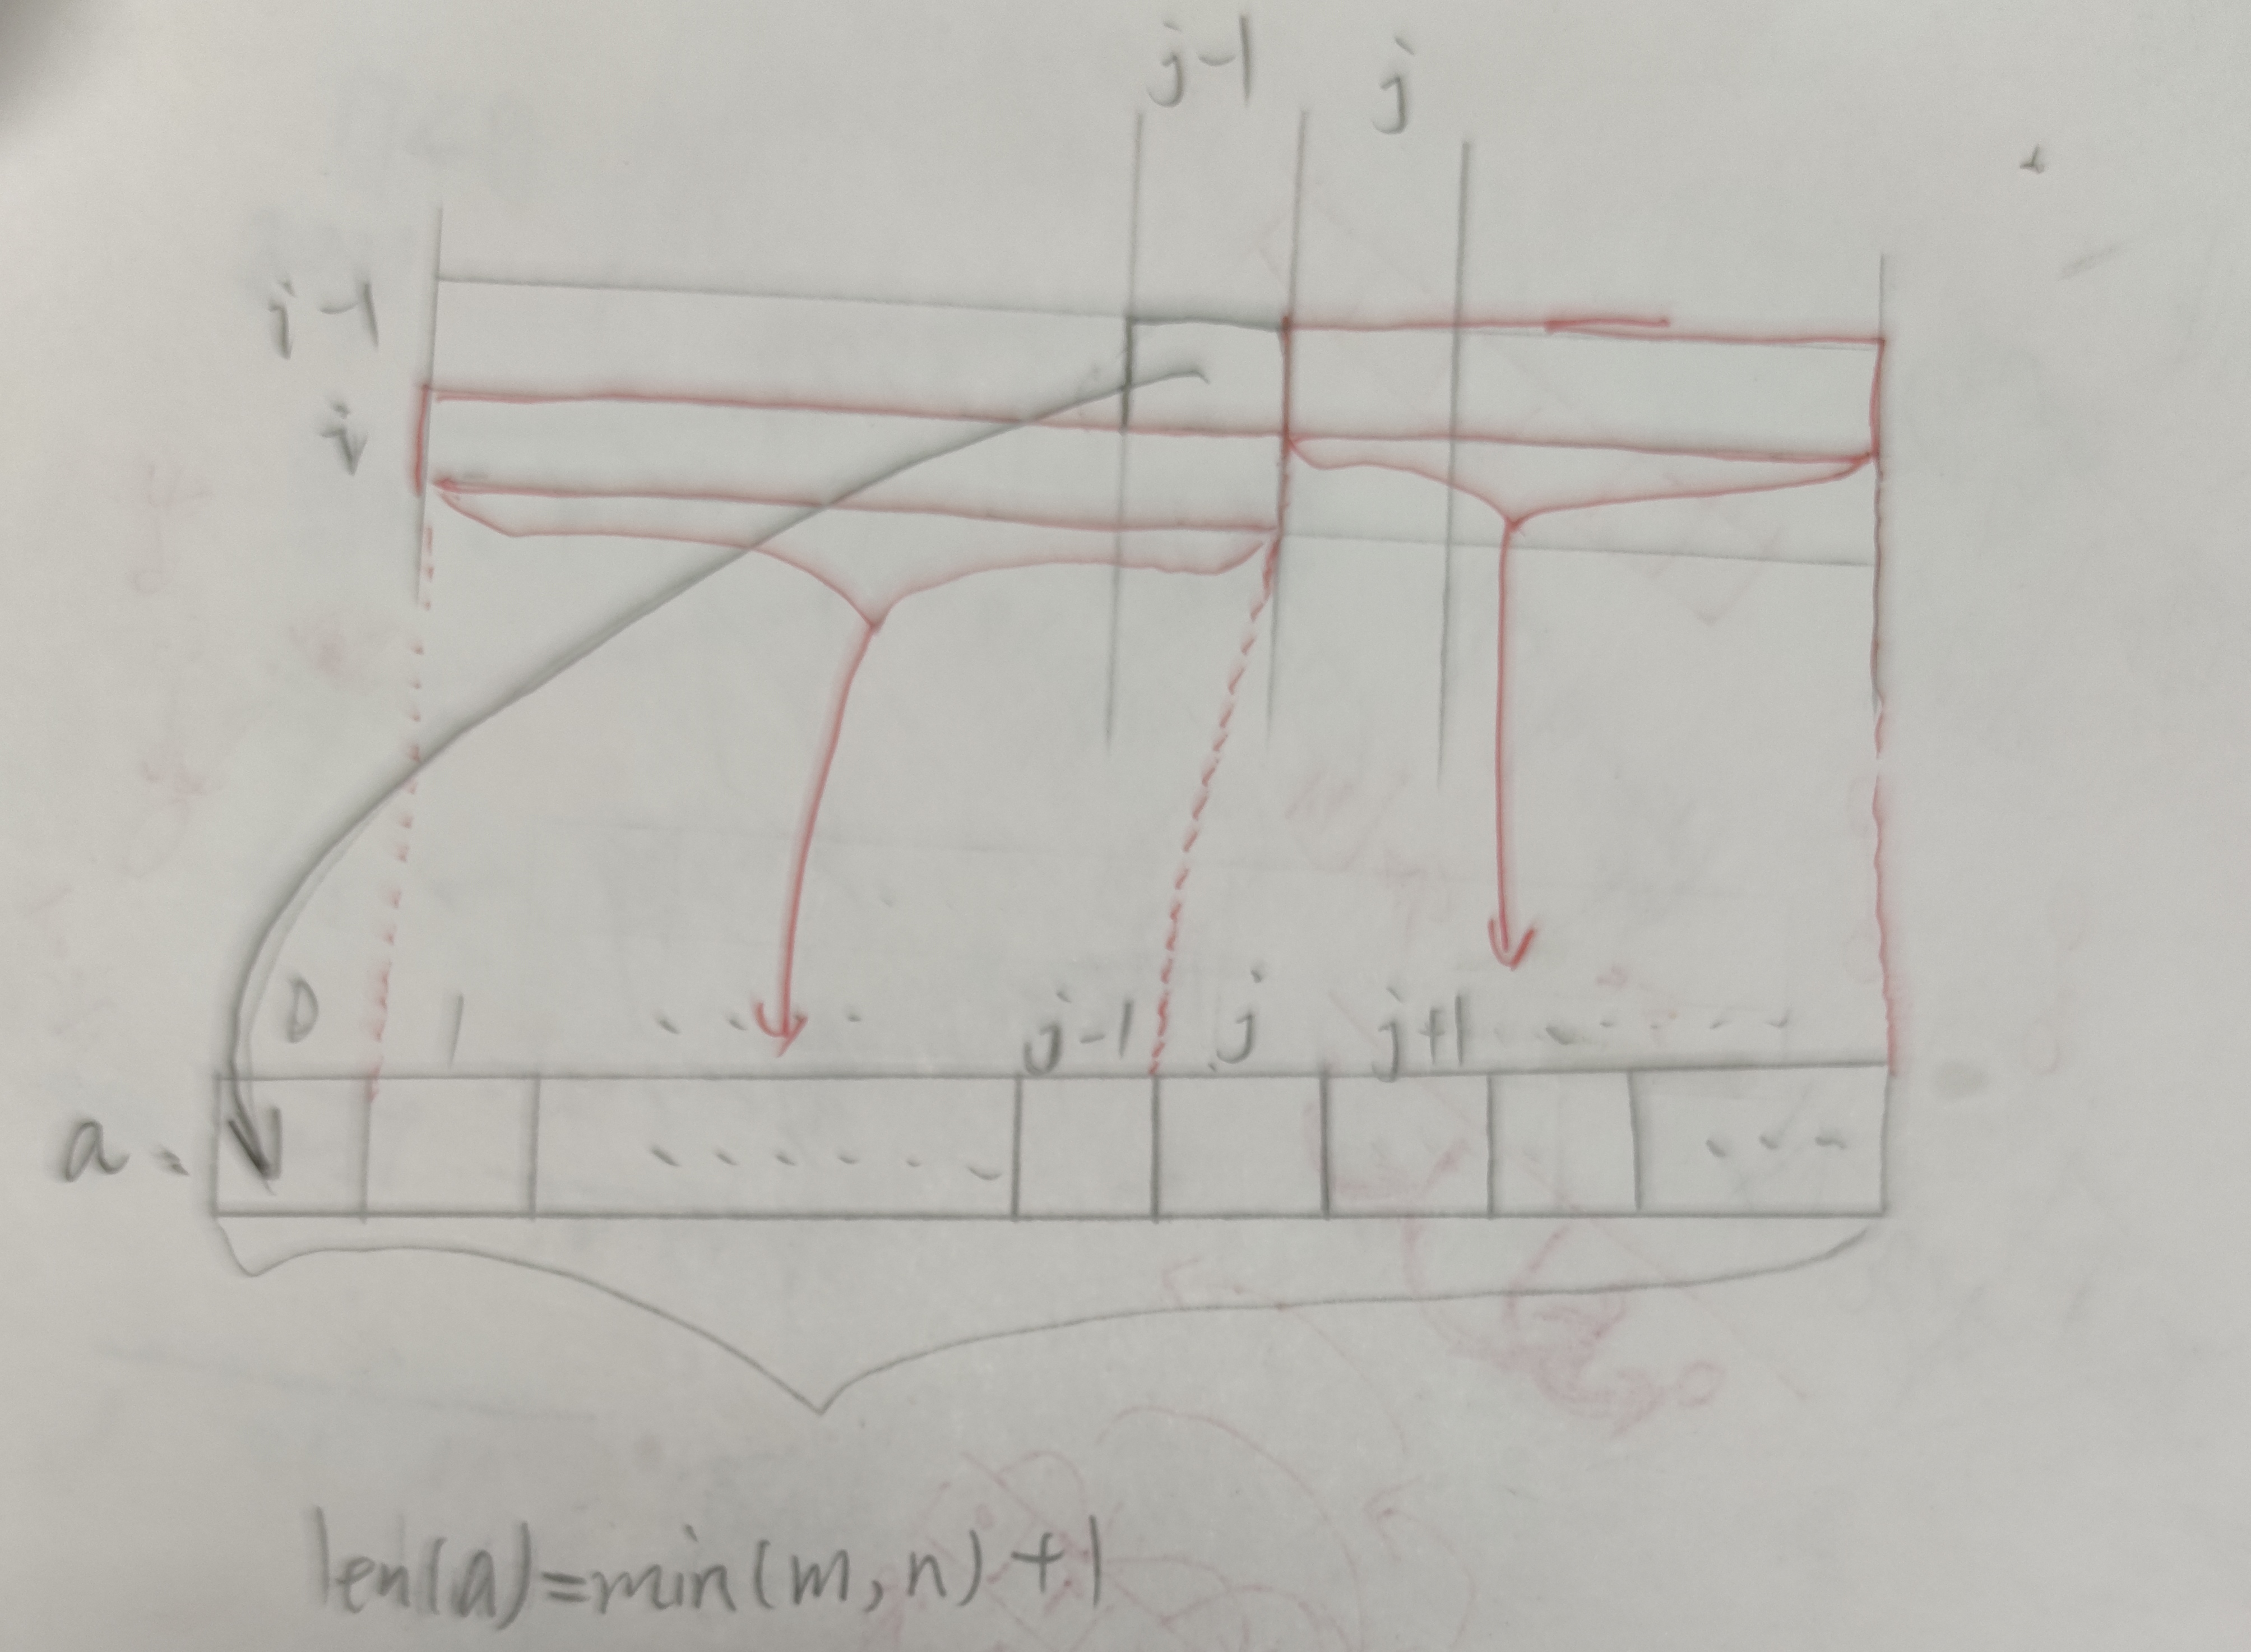 j-1 j
i-1
i
0 1 ..... j-1 j j+1 ......
a: ...... ...
len(a)=min(m,n)+1